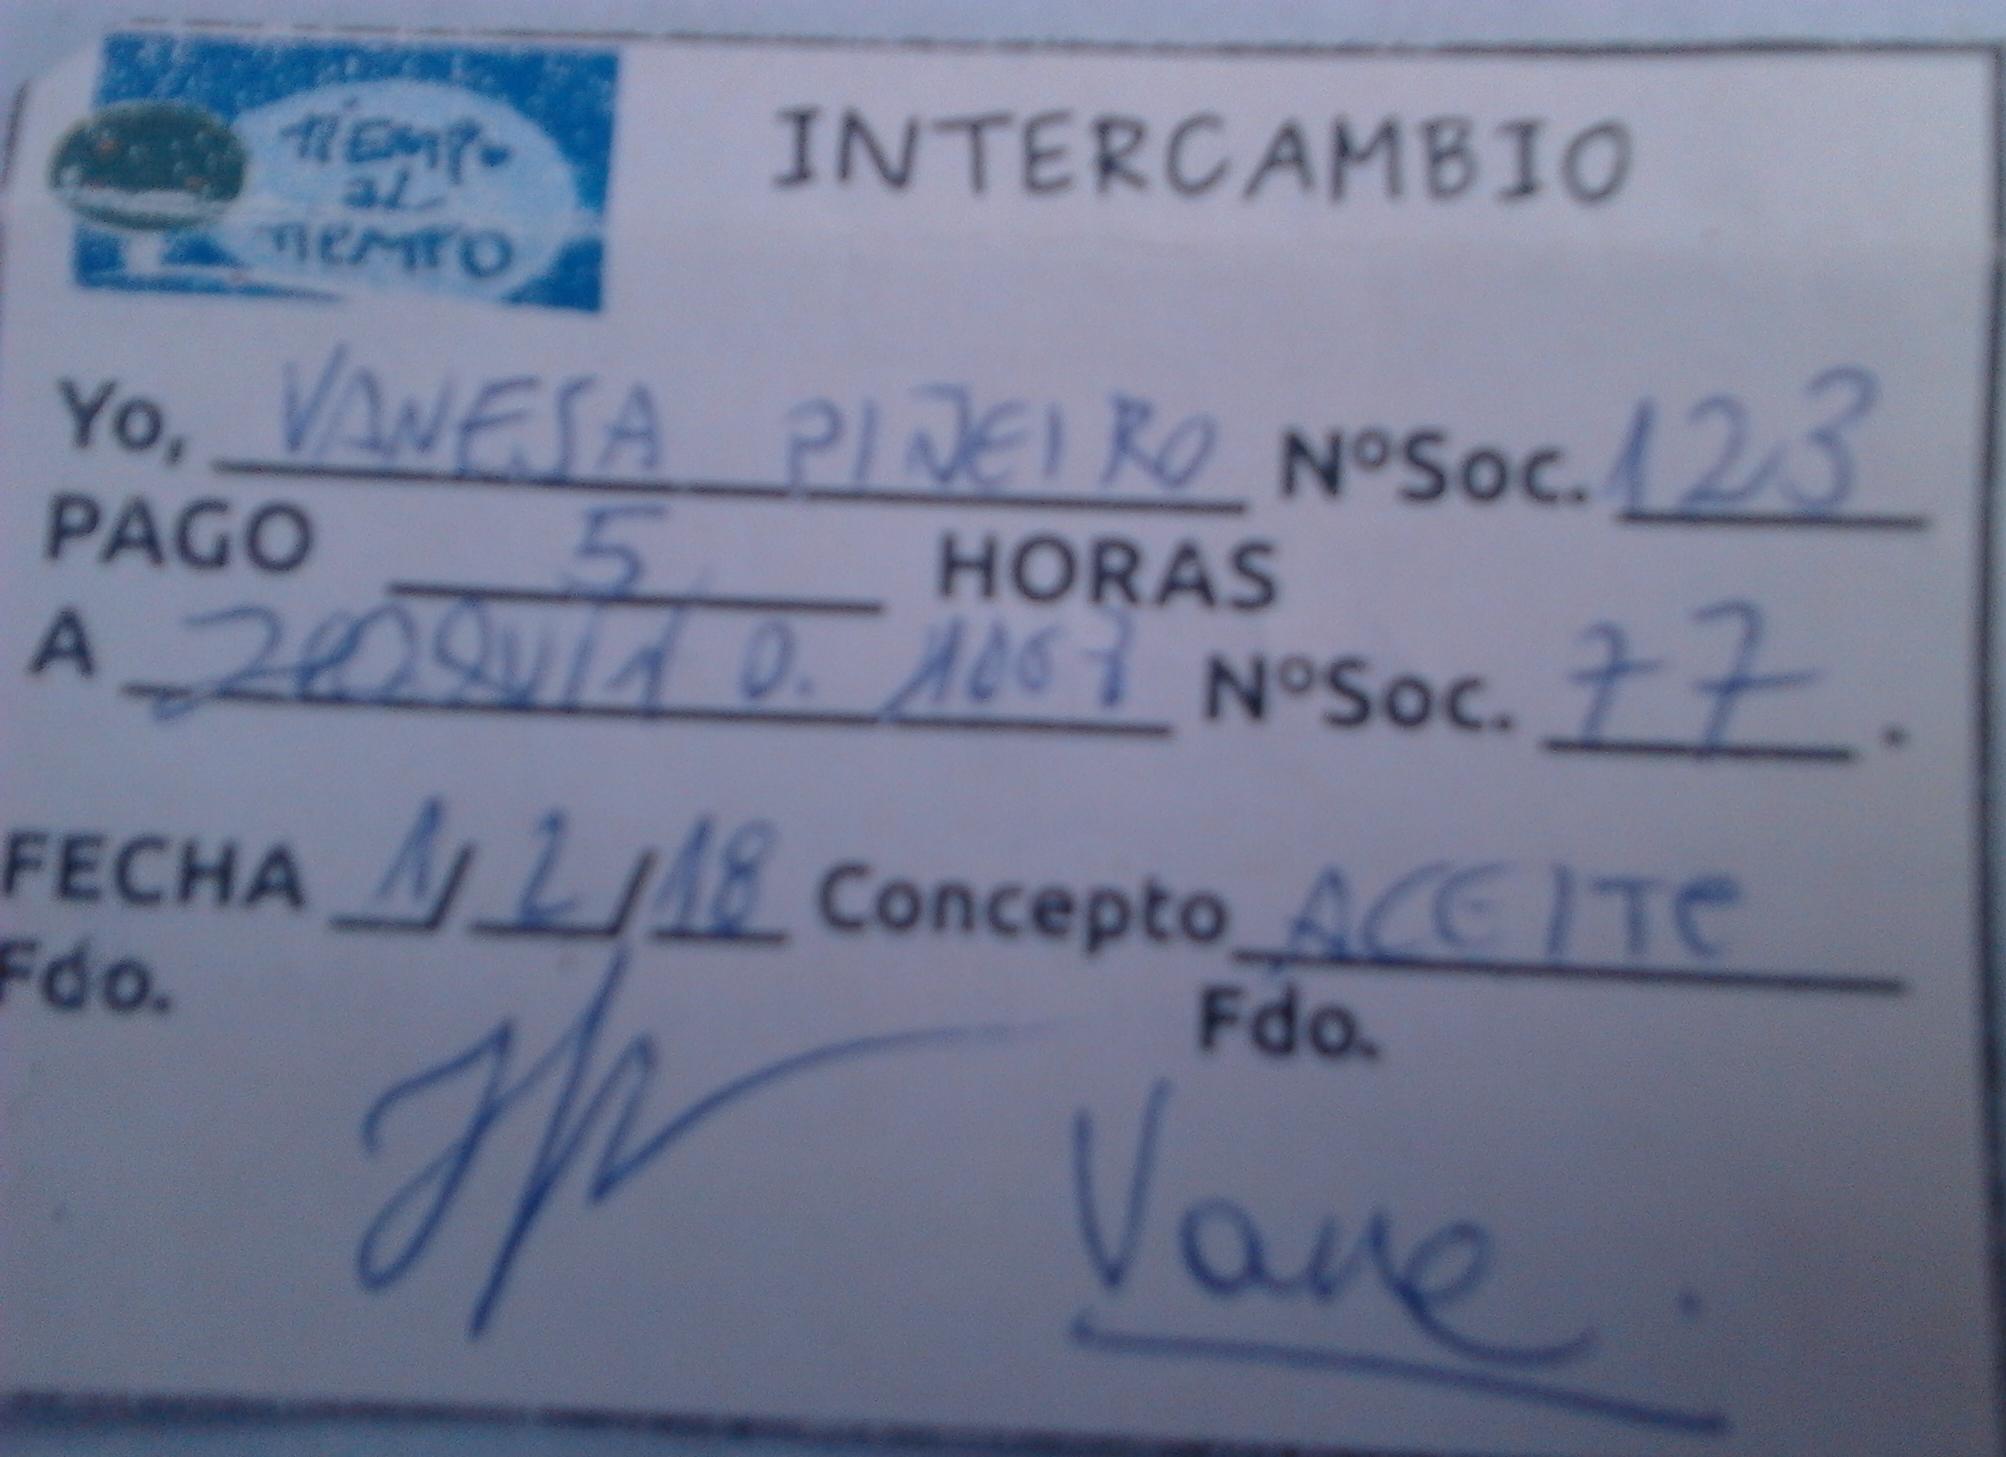 TIEMPO
AL
TIEMPO
INTERCAMBIO
Yo, VANESA PIÑEIRO NºSoc. 123
PAGO 5 HORAS
A NºSoc. 77.
FECHA 1/2/18 Concepto ACEITe
Fdo.
Fdo.
Vane